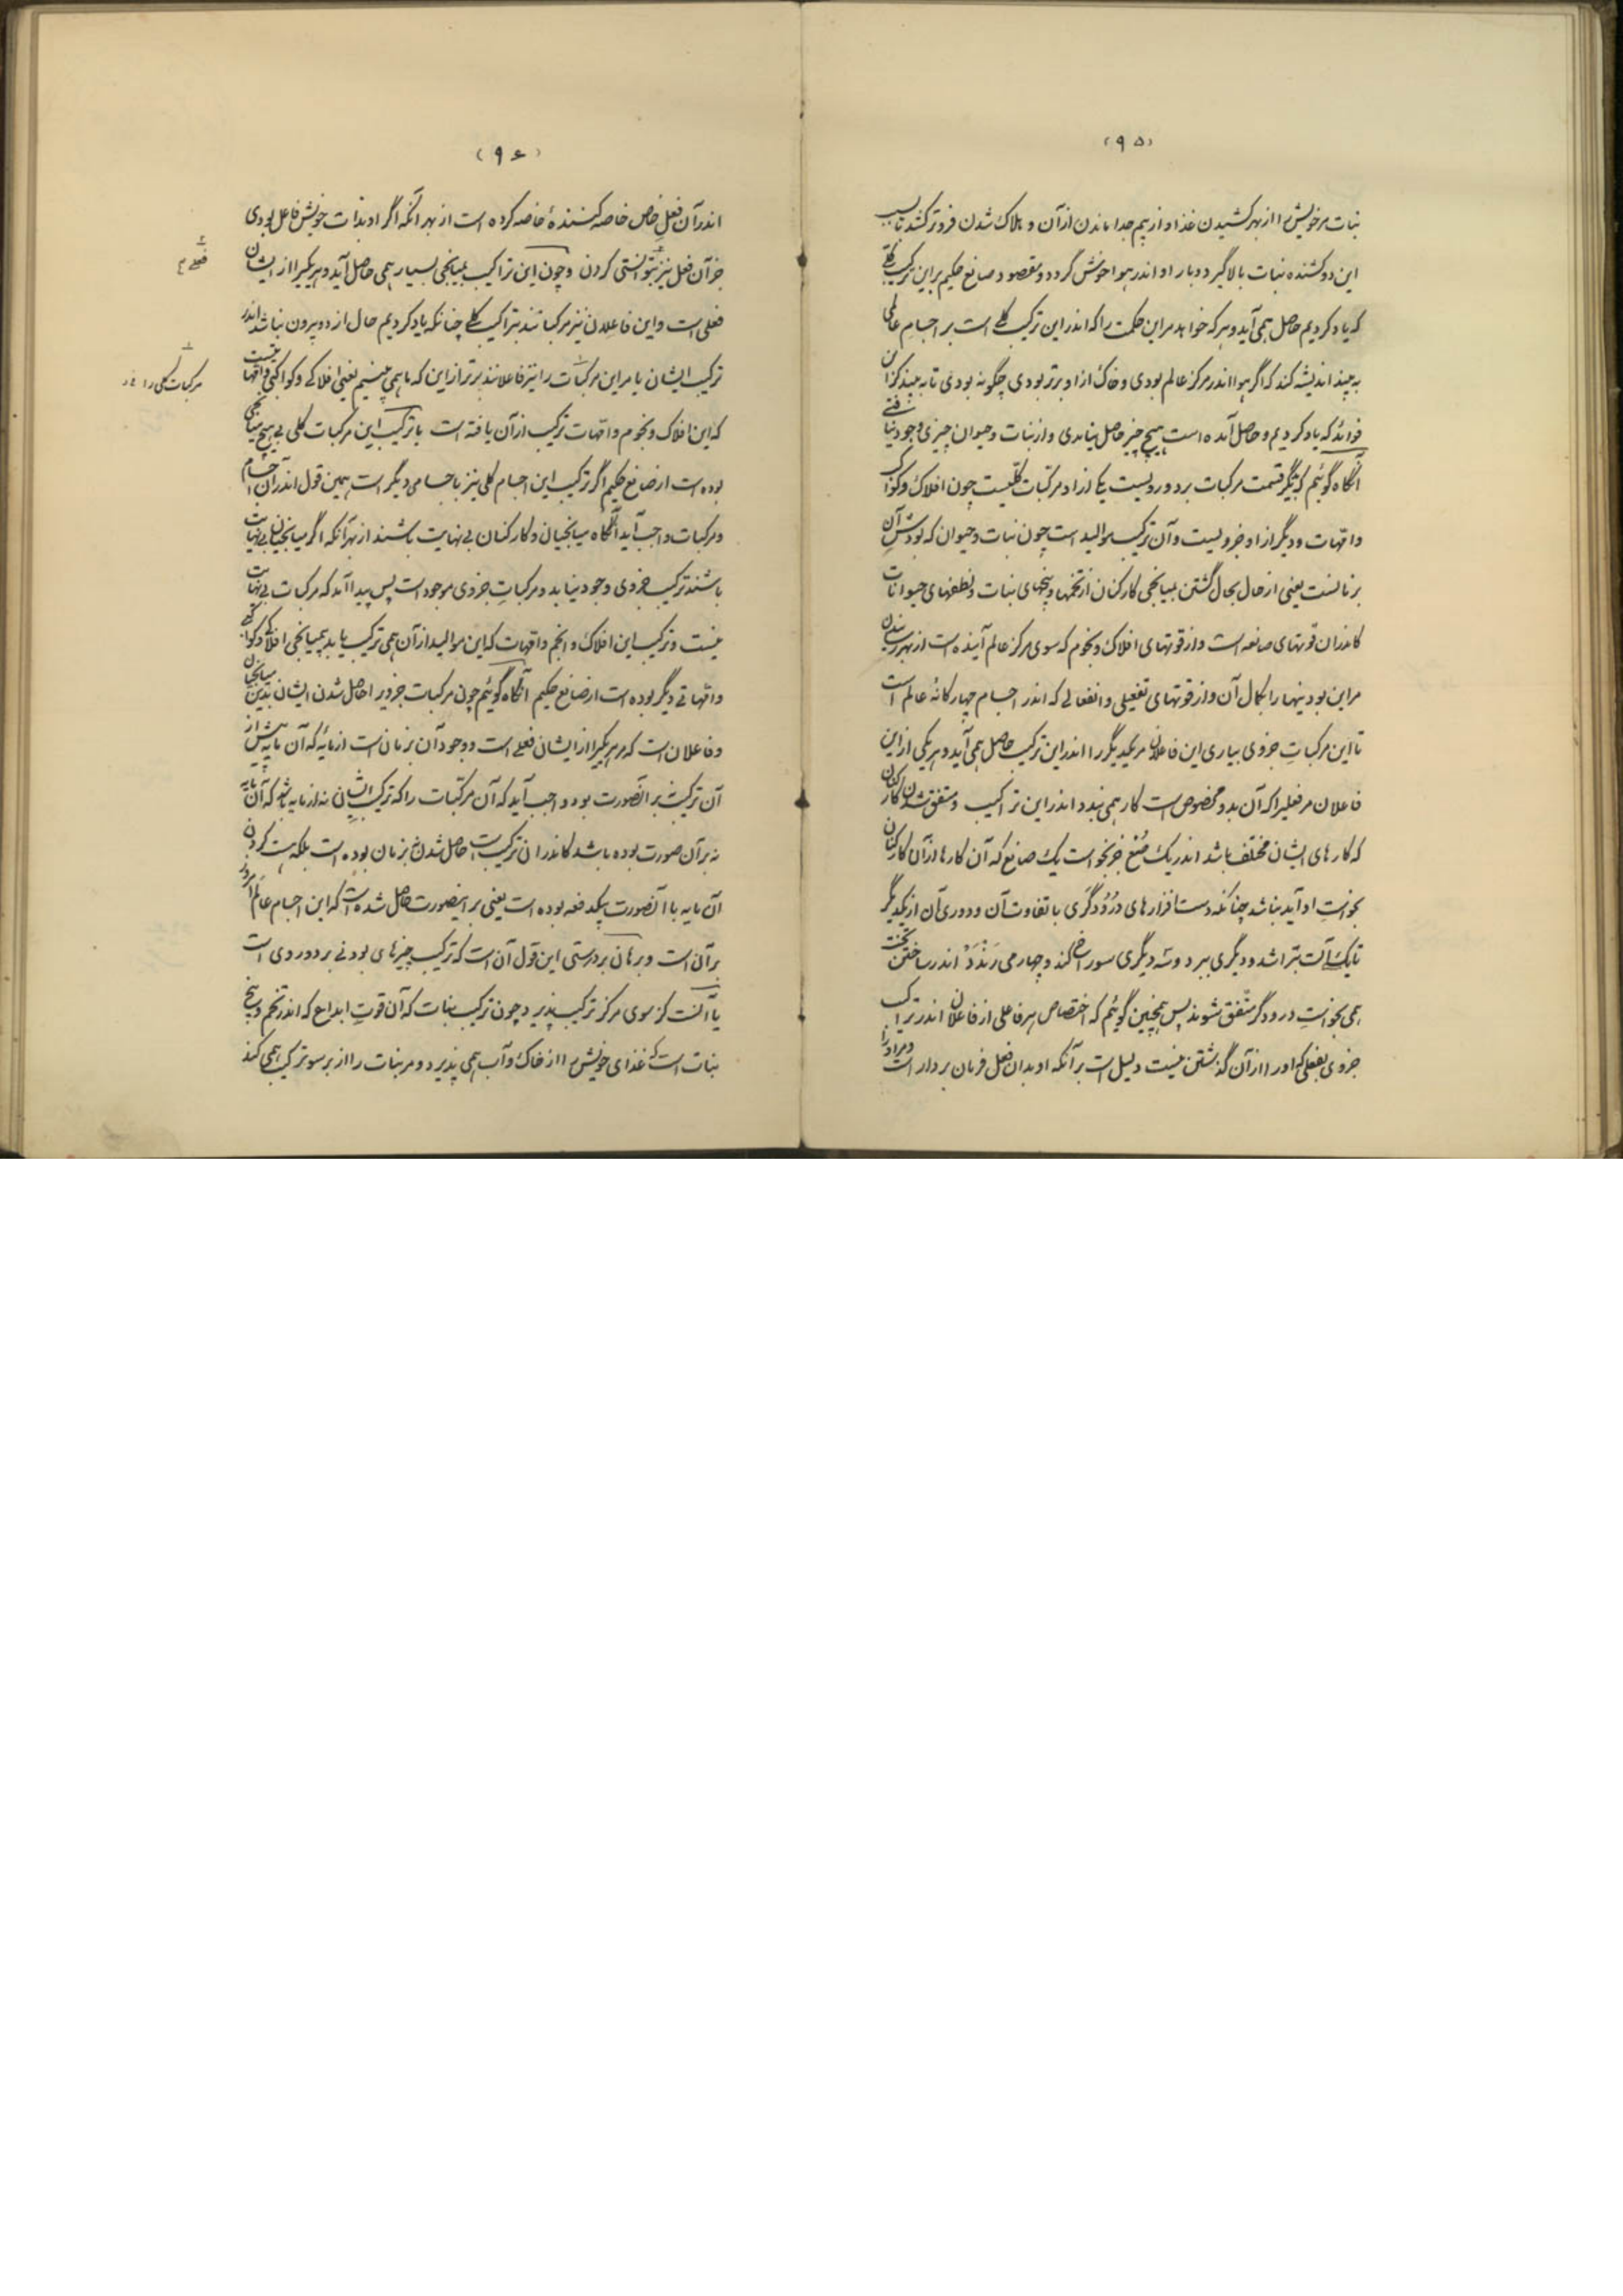 (۹۵)
نبات مر خویش را از بهر کشیدن غذا و از بیم جدا ماندن از آن و هلاک شدن فروتر کشد تا بسبب
این دو کشنده نبات بالا گیرد و بار او اندر هوا خوش گردد و مقصود صانع حکیم بر این ترکیب کلی
که یاد کردیم حاصل همی آید و هر که خواهد مر این حکمت را که اندر این ترکیب کلی است بر اجسام عالمی
به بیند اندیشه کند که اگر هوا اندر مرکز عالم بودی و خاک از او برتر بودی چگونه بودی تا به بیند کز این
فوائد که یاد کردیم و حاصل آمده است هیچ چیز حاصل نیامدی و از نبات و حیوان چیزی وجود نیافتی
آنگاه گوئیم که دیگر قسمت مرکبات بر دو رویست یکی از او مرکبات کلیست چون افلاک و کواکب
و امهات و دیگر از او جزویست و آن ترکیب موالید است چون نبات و حیوان که بودش آن
بزمانست یعنی از حال بحال گشتن بمیانجی کارکنان از تخمها و بیخهای نبات و نطفهای حیوانات
کاندران قوتهای صانعه است و از قوتهای افلاک و نجوم که سوی مرکز عالم آینده است از بهر رسانیدن
مر این بودنیها را بکمال آن و از قوتهای تفعیلی و انفعالی که اندر اجسام چهارگانهٔ عالم است
تا این مرکبات جزوی بیاری این فاعلان مر یکدیگر را اندر این ترکیب حاصل همی آید و هر یکی از این
فاعلان مر فعلیرا که آن بدو مخصوص است کار همی بندد اندر این تراکیب و متفق شدن کارکنان
که کارهای ایشان مختلف باشد اندر یک صنع جز بخواست یک صانع که آن کارها از آن کارکنان
بخواست او آید نباشد چنانکه دست افزارهای درودگری با تفاوت آن و دوری آن از یکدیگر
تا یک آلت بتراشد و دیگری ببرد و سه دیگری سوراخ کند و چهارمی رندد اندر ساختن تخت
همی بخواست درودگر متفق شوند پس همچنین گوئیم که اختصاص هر فاعلی از فاعلان اندر تراکیب
جزوی بفعلی که او را از آن گذشتن نیست دلیل است بر آنکه او بدان فعل فرمان بردار است و مر او را
(۹۶)
اندر آن فعل خاص خاصه کنندهٔ خاصه کرده است از بهر آنکه اگر او بذات خویش فاعل بودی
جز آن فعل نیز بتوانستی کردن و چون این تراکیب بمیانجی بسیار همی حاصل آید و هر یکیرا از ایشان
فعلی است و این فاعلان نیز مرکباتند بتراکیب کلی چنانکه یاد کردیم حال از دو بیرون نباشد اندر
ترکیب ایشان یا مر این مرکبات را نیز فاعلانند برتر از این که ما همی بینیم یعنی افلاکی و کواکبی و امهاتیست
که این افلاک و نجوم و امهات ترکیب از آن یافته است یا ترکیب این مرکبات کلی بی هیچ میانجی
بوده است از صانع حکیم اگر ترکیب این اجسام کلی نیز باجسامی دیگر است همین قول اندر آن اجسام
و مرکبات واجب آید آنگاه میانجیان و کارکنان بی نهایت باشند از بهر آنکه اگر میانجیان بی نهایت
باشند ترکیب جزوی وجود نیابد و مرکبات جزوی موجود است پس پیدا آمد که مرکبات بی نهایت
نیست و ترکیب این افلاک و انجم و امهات که این موالید از آن همی ترکیب یابد بی میانجی افلاک و کواکبی
و امهاتی دیگر بوده است از صانع حکیم آنگاه گوئیم چون مرکبات جزویرا حاصل شدن ایشان بدین میانجیان
و فاعلان است که مر هر یکیرا از ایشان فعلی است و وجود آن بزمان است از مایهٔ که آن مایه پیش از
آن ترکیب نه بر آنصورت بود واجب آید که آن مرکبات را که ترکیب ایشان نه از مایه باشد که آن مایه
نه بر آن صورت بوده باشد کاندر ان ترکیب است حاصل شدن نه بزمان بوده است بلکه هست کردن
آن مایه با آنصورت بیکدفعه بوده است یعنی بر اینصورت حاصل شده است که این اجسام عالم امروز
بر آن است و برهان بر درستی این قول آن است که ترکیب چیزهای بودنی بر دو روی است
یا آنست کز سوی مرکز ترکیب پذیرد چون ترکیب نبات که آن قوت ابداع که اندر تخم و بیخ
نبات است که غذای خویش را از خاک و آب همی پذیرد و مر نبات را از بر سو ترکیب همی کند
فعلی م
مرکبات کلی را